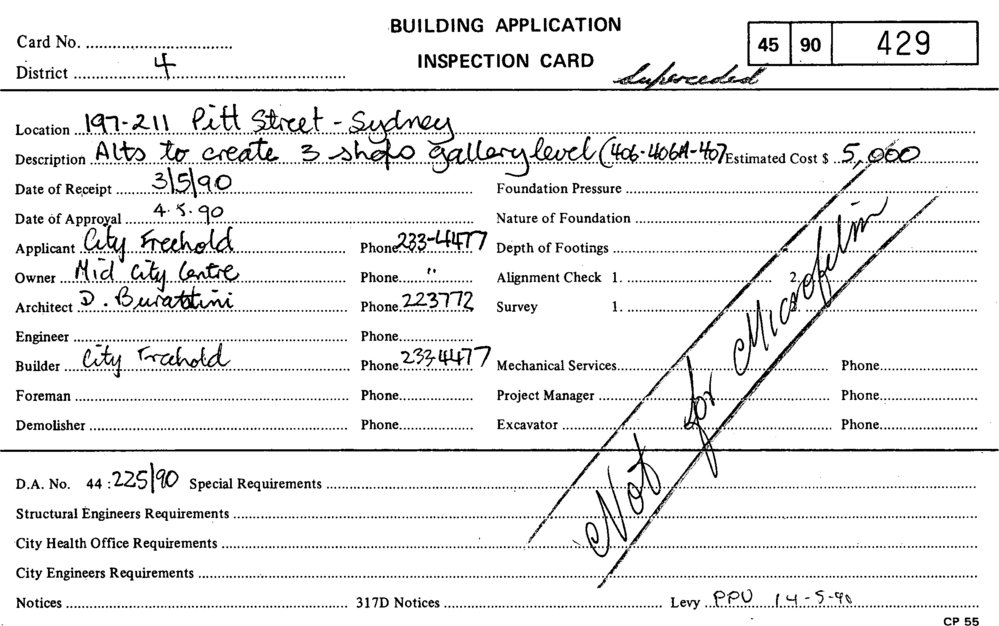 BUILDING APPLICATION
INSPECTION CARD
Card No.
District 4
45 90 429
Superceded
Location 197-211 Pitt Street - Sydney
Description Alts to create 3 shops gallery level (406-406A-407 Estimated Cost $ 5,000
Date of Receipt 3/5/90 Foundation Pressure
Date of Approval 4.5.90 Nature of Foundation
Applicant City Freehold Phone 233-4477 Depth of Footings
Owner Mid City Centre Phone " Alignment Check 1. 2.
Architect D. Burattini Phone 223772 Survey 1.
Engineer Phone
Builder City Freehold Phone 233 4477 Mechanical Services Phone
Foreman Phone Project Manager Phone
Demolisher Phone Excavator Phone
Not for Microfilm
D.A. No. 44 : 225/90 Special Requirements
Structural Engineers Requirements
City Health Office Requirements
City Engineers Requirements
Notices 317D Notices Levy PPU 14-5-90
CP 55